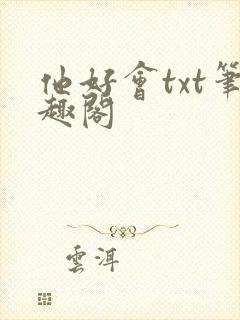 他好會txt筆
趣閣
雲洱